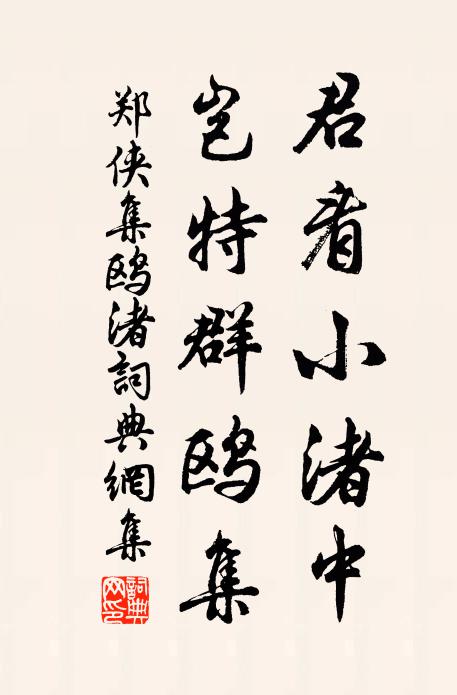 君看小渚中
岂特群鸥集
郑侠集鸥渚詞典網集
詞典网印